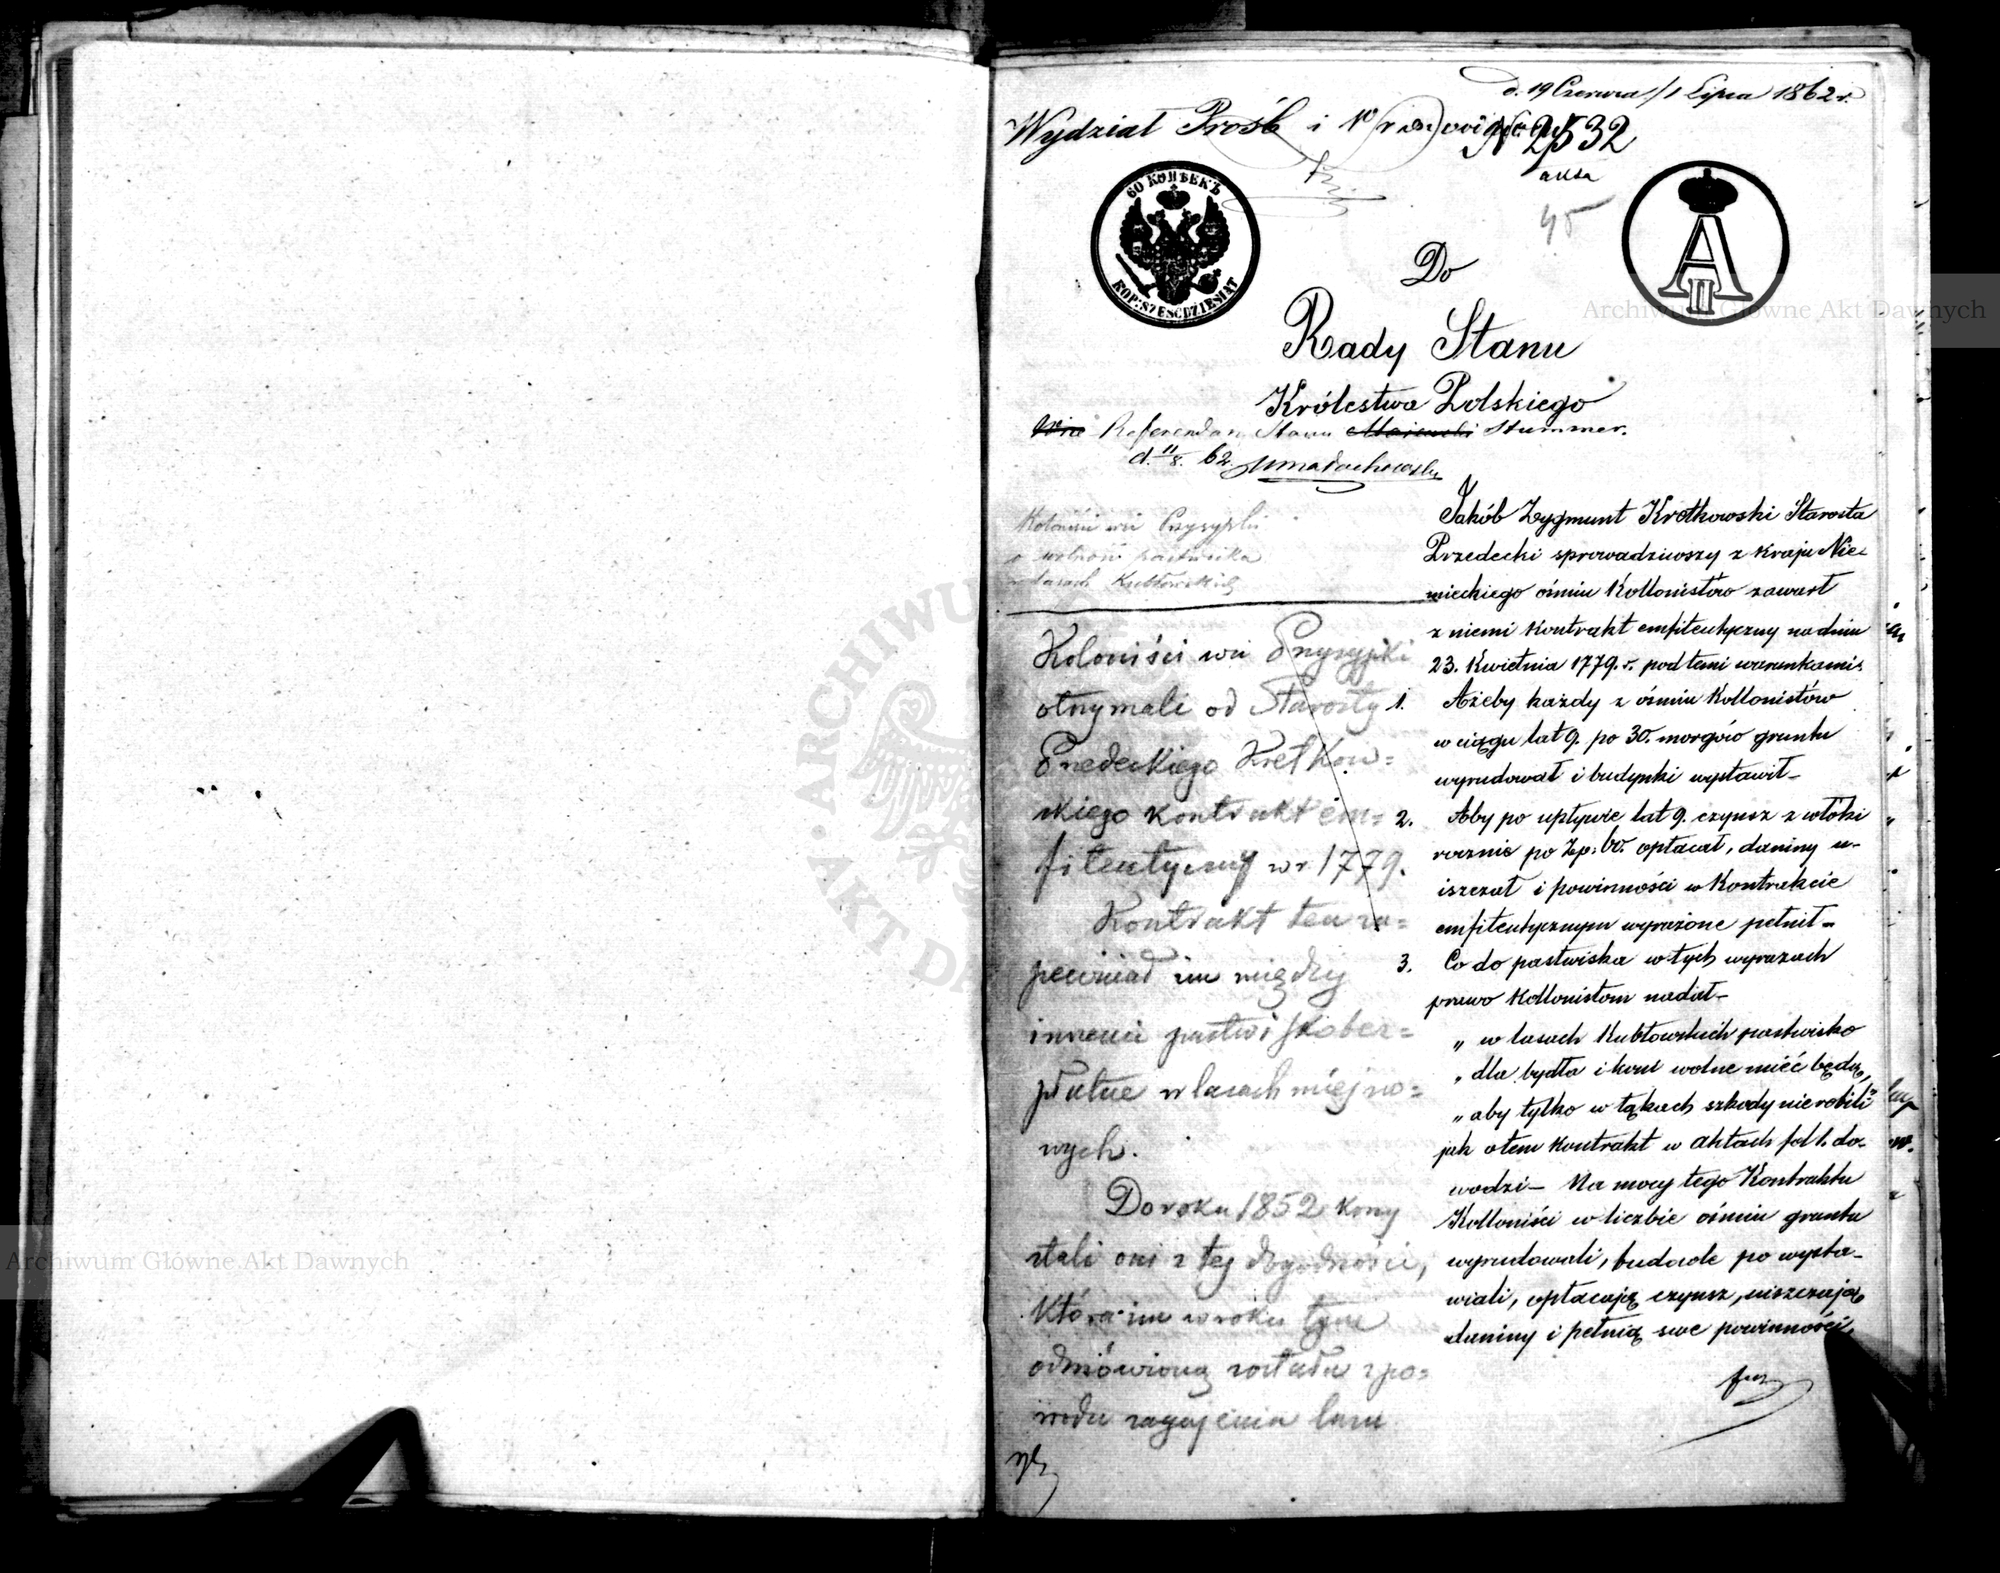 d. 19 Czerwca/1 Lipca 1862 r.
Wydział Prośb i
N. 2532
45
60 КОПѢЕКЪ
KOP: SZEŚĆDZIESIĄT
A II
Do
Rady Stanu
Królestwa Polskiego
Referendarz Stanu Stummer.
d. 11/8. 62.
Koloniści wsi Przysypki
o wolność pastwiska
w lasach Kubłowskich
Koloniści wsi Przysypki
otrzymali od Starosty
Przedeckiego Kretkow=
skiego kontrakt em=
fiteutyczny w r. 1779.
Kontrakt ten za=
pewniał im między
innemi pastwisko bez=
płatne w lasach miejsco=
wych.
Do roku 1852 korzy
stali oni z tej dogodności,
która im w roku tym
odmówioną została z po=
wodu zagajenia lasu
Jakób Zygmunt Krotkowski Starosta
Przedecki sprowadziwszy z kraju Nie-
mieckiego ośmiu Kollonistów zawarł
z niemi Kontrakt emfiteutyczny na dniu
23. Kwietnia 1779. r. pod temi warunkami:
1. Ażeby każdy z ośmiu Kollonistów
w ciągu lat 9. po 30. morgów gruntu
wyrudował i budynki wystawił_
2. Aby po upływie lat 9. czynsz z włóki
rocznie po Zp: 60. opłacał, daniny u-
iszczał i powinności w Kontrakcie
emfiteutycznym wyrażone pełnił_
3. Co do pastwiska w tych wyrazach
prawo Kollonistom nadał_
„ w lasach Kubłowskich pastwisko
„ dla bydła i koni wolne mieć będą,
„ aby tylko w łąkach szkody nie robili"
jak o tem Kontrakt w aktach fol 1. do-
wodzi_ Na mocy tego Kontraktu
Kolloniści w liczbie ośmiu grunta
wyrudowali, budowle po wysta-
wiali, opłacają czynsz, uiszczają
daniny i pełnią swe powinności,
Archiwum Główne Akt Dawnych
Archiwum Główne Akt Dawnych